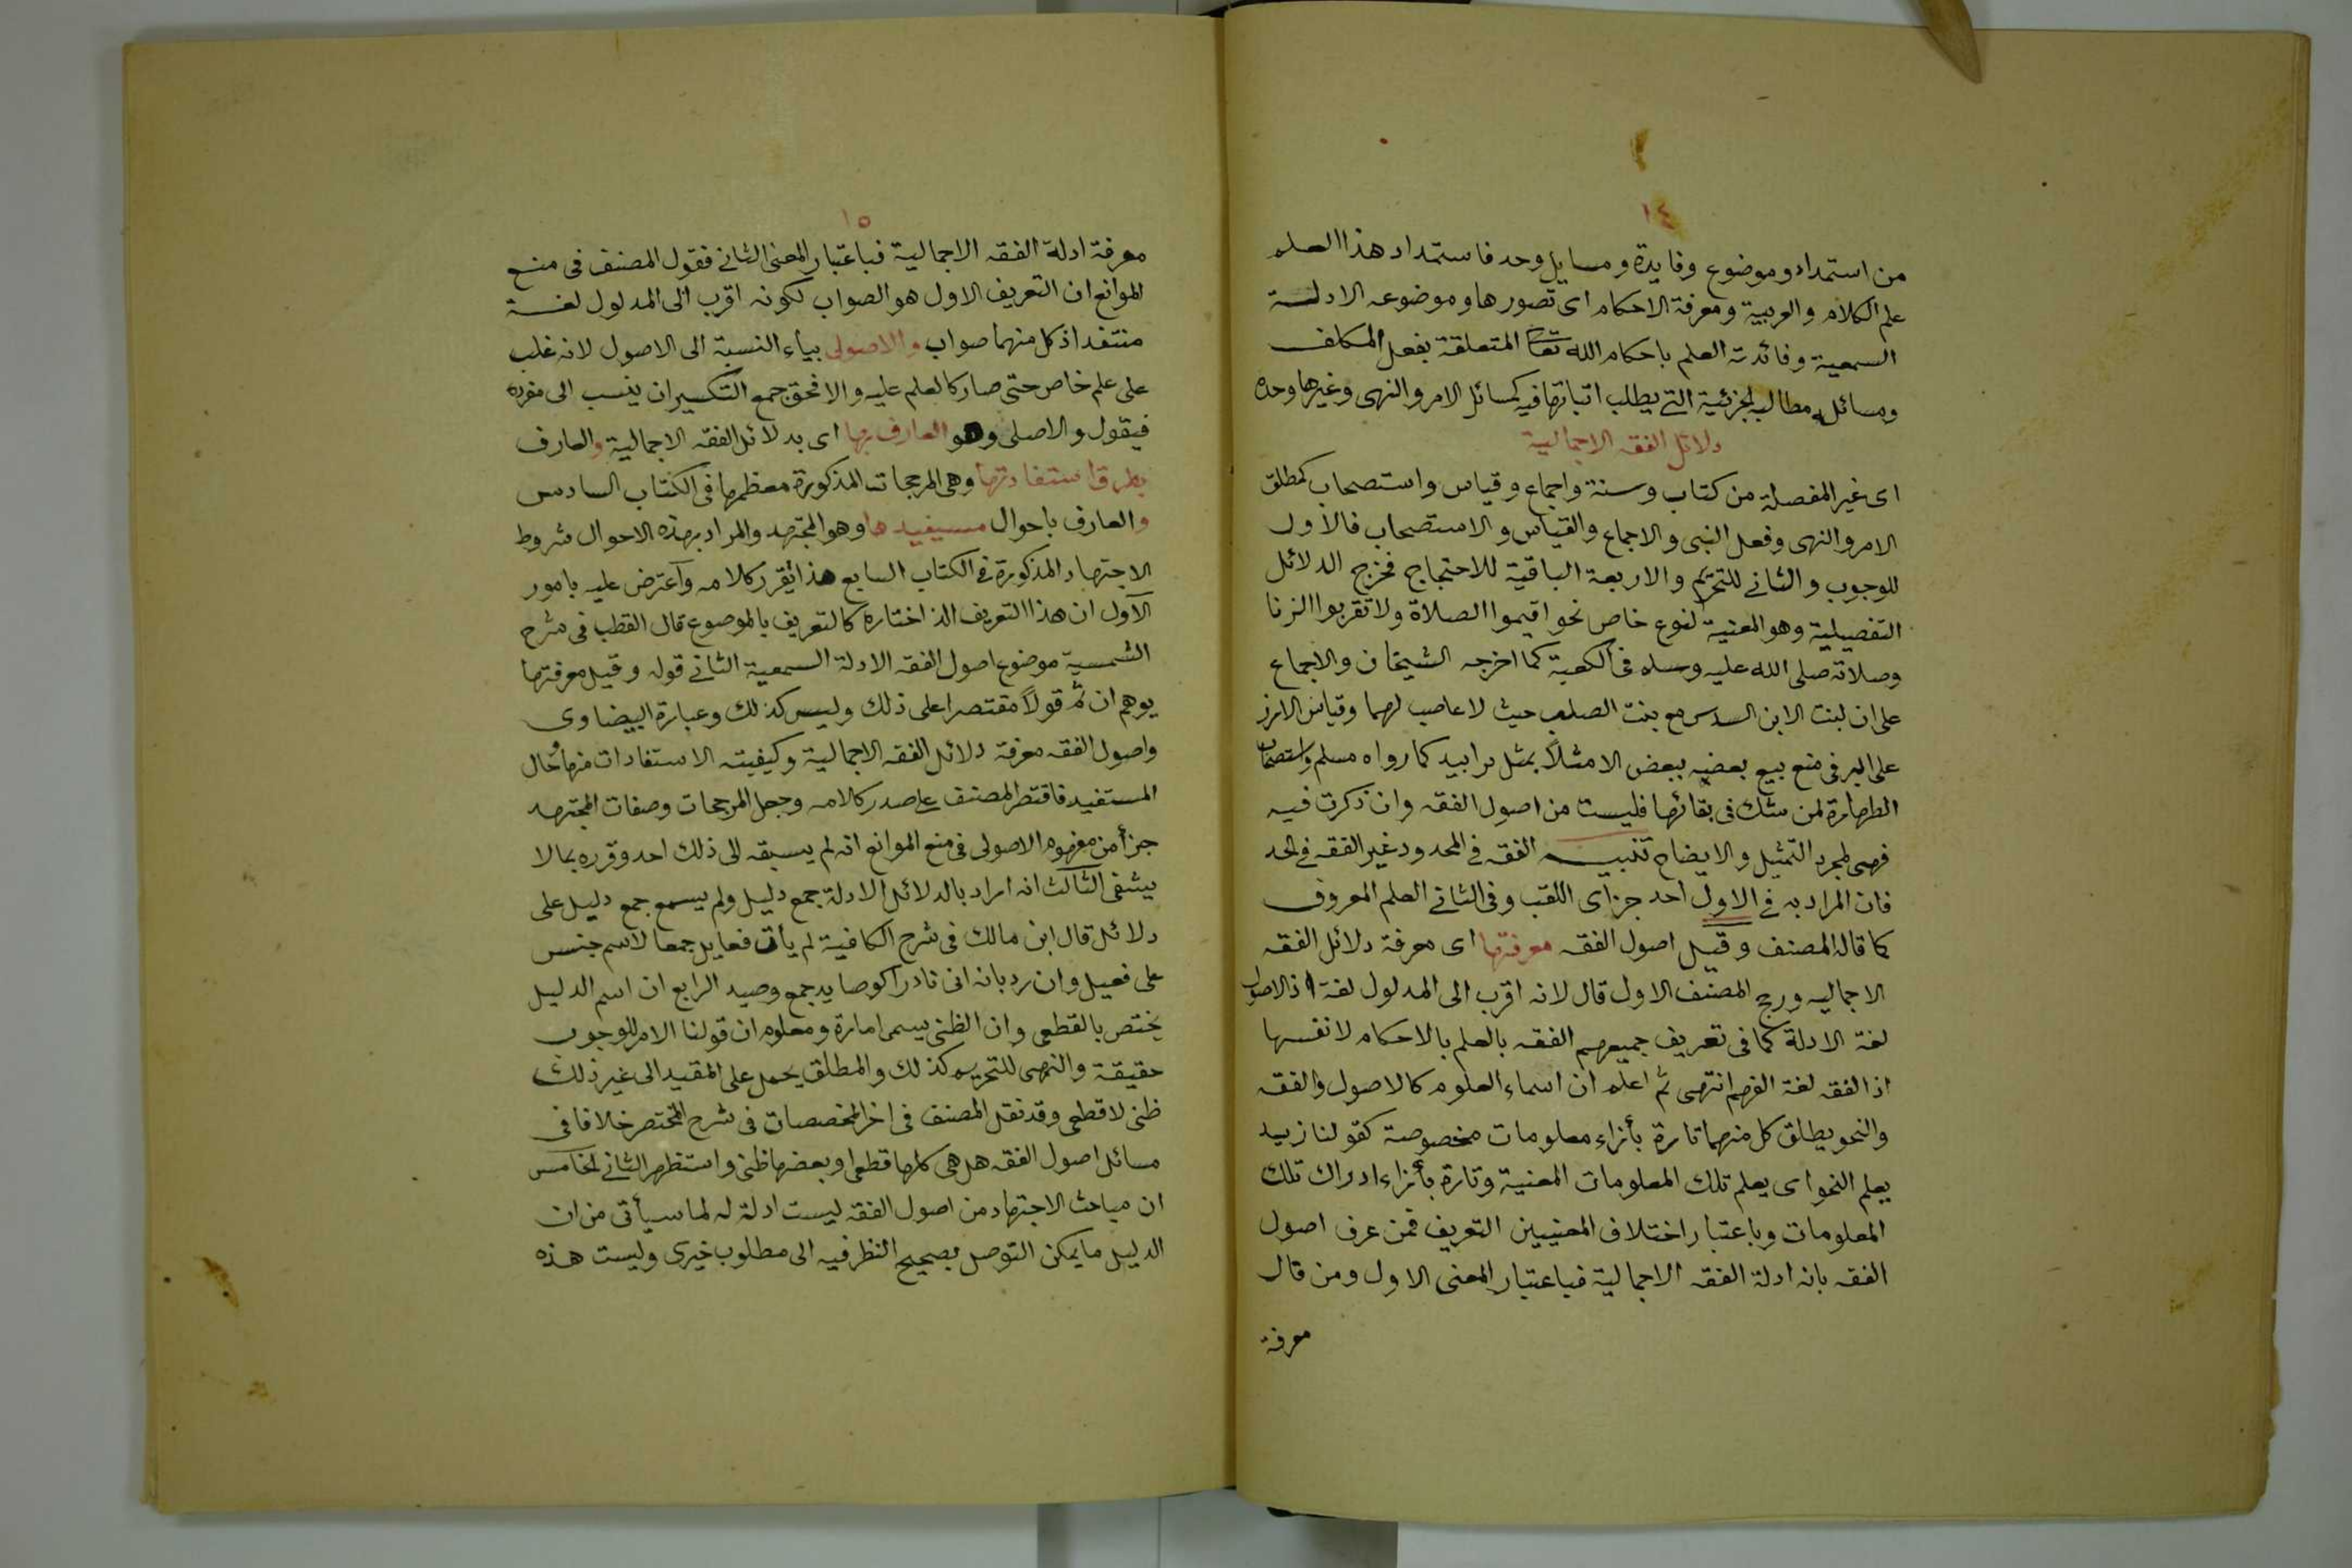 ١٤
من استمداد وموضوع وفايدة ومسايل وحد فاستمداد هذا العلم
علم الكلام والعربية ومعرفة الاحكام اى تصورها وموضوعه الادلة
السمعية وفائدته العلم باحكام الله تعا المتعلقة بفعل المكلف
ومسائله مطالبه الجزئية التى يطلب اثباتها فيه كمسائل الامر والنهى وغيرها وحده
دلائل الفقه الاجمالية
اى غير المفصلة من كتاب وسنة واجماع وقياس واستصحاب كمطلق
الامر والنهى وفعل النبى والاجماع والقياس والاستصحاب فالاول
للوجوب والثانى للتحريم والاربعة الباقية للاحتجاج فخرج الدلائل
التفصيلية وهو المعنية لنوع خاص نحو اقيموا الصلاة ولا تقربوا الزنا
وصلاته صلى الله عليه وسلم فى الكعبة كما اخرجه الشيخان والاجماع
على ان لبنت الابن السدس مع بنت الصلب حيث لا عاصب لهما وقياس الارز
على البر فى منع بيع بعضه ببعض الا مثلاً بمثل يدا بيد كما رواه مسلم واستصحاب
الطهارة لمن شك فى بقائها فليست من اصول الفقه وان ذكرت فيه
فهى لمجرد التمثيل والايضاح تنبيه الفقه فى المحدود غير الفقه فى الحد
فان المراد به فى الاول احد جزاى اللقب وفى الثانى العلم المعروف
كما قاله المصنف وقيل اصول الفقه معرفتها اى معرفة دلائل الفقه
الاجماليه ورجح المصنف الاول قال لانه اقرب الى المدلول لغة اذ الاصول
لغة الادلة كما فى تعريف جميعهم الفقه بالعلم بالاحكام لا نفسها
اذ الفقه لغة الفهم انتهى ثم اعلم ان اسماء العلوم كالاصول والفقه
والنحو يطلق كل منهما تارة بأزاء معلومات مخصوصة كقولنا زيد
يعلم النحو اى يعلم تلك المعلومات المعنية وتارة بأزاء ادراك تلك
المعلومات وباعتبار اختلاف المعنيين التعريف فمن عرف اصول
الفقه بانه ادلة الفقه الاجمالية فباعتبار المعنى الاول ومن قال
معرفة
١٥
معرفة ادلة الفقه الاجمالية فباعتبار المعنى الثانى فقول المصنف فى منع
الموانع ان التعريف الاول هو الصواب لكونه اقرب الى المدلول لغة
منتقد اذ كل منهما صواب والاصولى بياء النسبة الى الاصول لانه غلب
على علم خاص حتى صار كالعلم عليه والا فحق جمع التكسير ان ينسب الى مفرده
فيقول والاصلى وهو العارف بها اى بدلائل الفقه الاجمالية والعارف
بطرق استفادتها وهى المرجحات المذكورة معظمها فى الكتاب السادس
والعارف باحوال مستفيدها وهو المجتهد والمراد بهذه الاحوال شروط
الاجتهاد المذكورة فى الكتاب السابع هذا تقرر كلامه وآعترض عليه بامور
الآول ان هذا التعريف الذ اختاره كالتعريف بالموضوع قال القطب فى شرح
الشمسية موضوع اصول الفقه الادلة السمعية الثانى قوله وقيل معرفتها
يوهم ان ثم قولاً مقتصرا على ذلك وليس كذلك وعبارة البيضاوى
واصول الفقه معرفة دلائل الفقه الاجمالية وكيفيته الاستفادات منها وحال
المستفيد فاقتصر المصنف على صدر كلامه وجعل المرجحات وصفات المجتهد
جزأ من مفهوم الاصولى فى منع الموانع انه لم يسبقه الى ذلك احد وقرره بما لا
يشفى الثالث انه اراد بالدلائل الادلة جمع دليل ولم يسمع جمع دليل على
دلائل قال ابن مالك فى شرح الكافية لم يأت فعايل جمعا لاسم جنس
على فعيل وان رد بانه اتى نادرا كوصايد جمع وصيد الرابع ان اسم الدليل
يختص بالقطعى وان الظنى يسمى امارة ومعلوم ان قولنا الامر للوجوب
حقيقة والنهى للتحريم كذلك والمطلق يحمل على المقيد الى غير ذلك
ظنى لا قطعى وقد نقل المصنف فى اخر المخصصات فى شرح المختصر خلافا فى
مسائل اصول الفقه هل هى كلها قطعى او بعضها ظنى واستظهر الثانى الخامس
ان مباحث الاجتهاد من اصول الفقه ليست ادلة له لما سيأتى من ان
الدليل ما يمكن التوصل بصحيح النظر فيه الى مطلوب خبرى وليست هذه